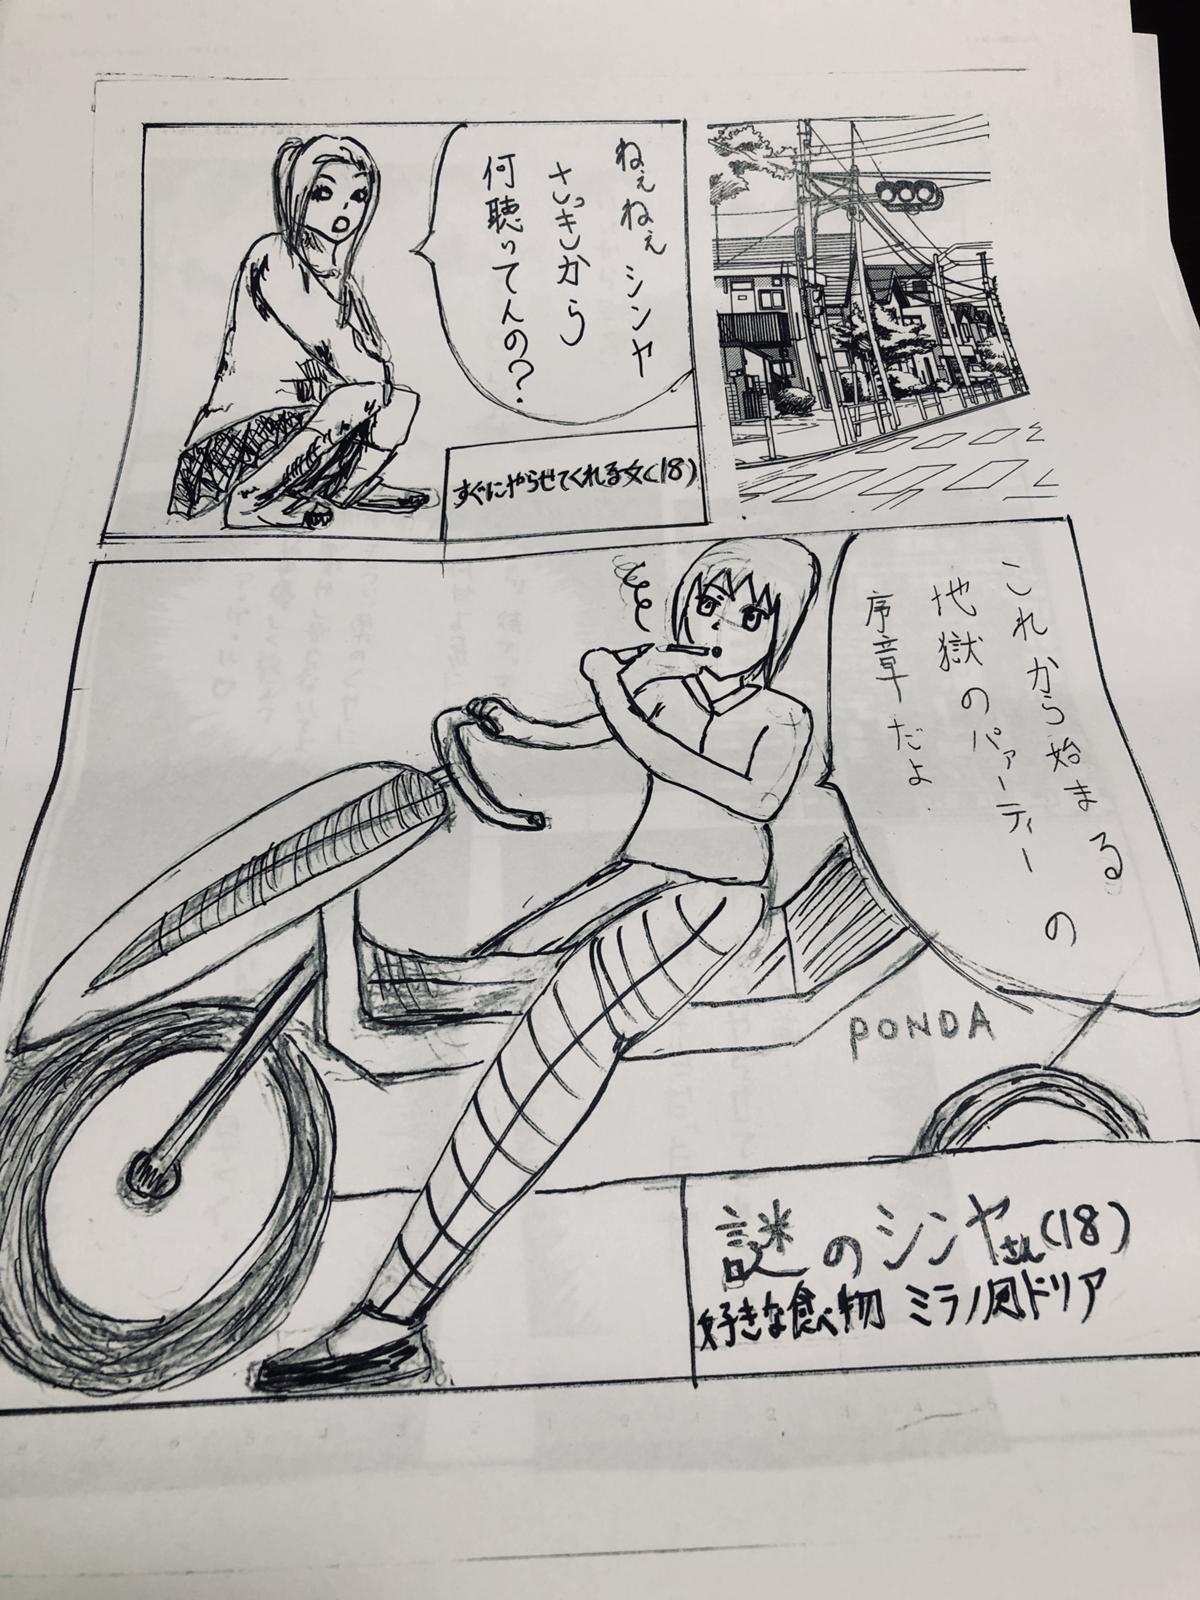 ねぇねぇシンヤ
さっきから
何聴いてんの?
すぐにやらせてくれる女(18)
これから始まる
地獄のパァーティーの
序章だよ
PONDA
謎のシンヤさん(18)
好きな食べ物 ミラノ風ドリア